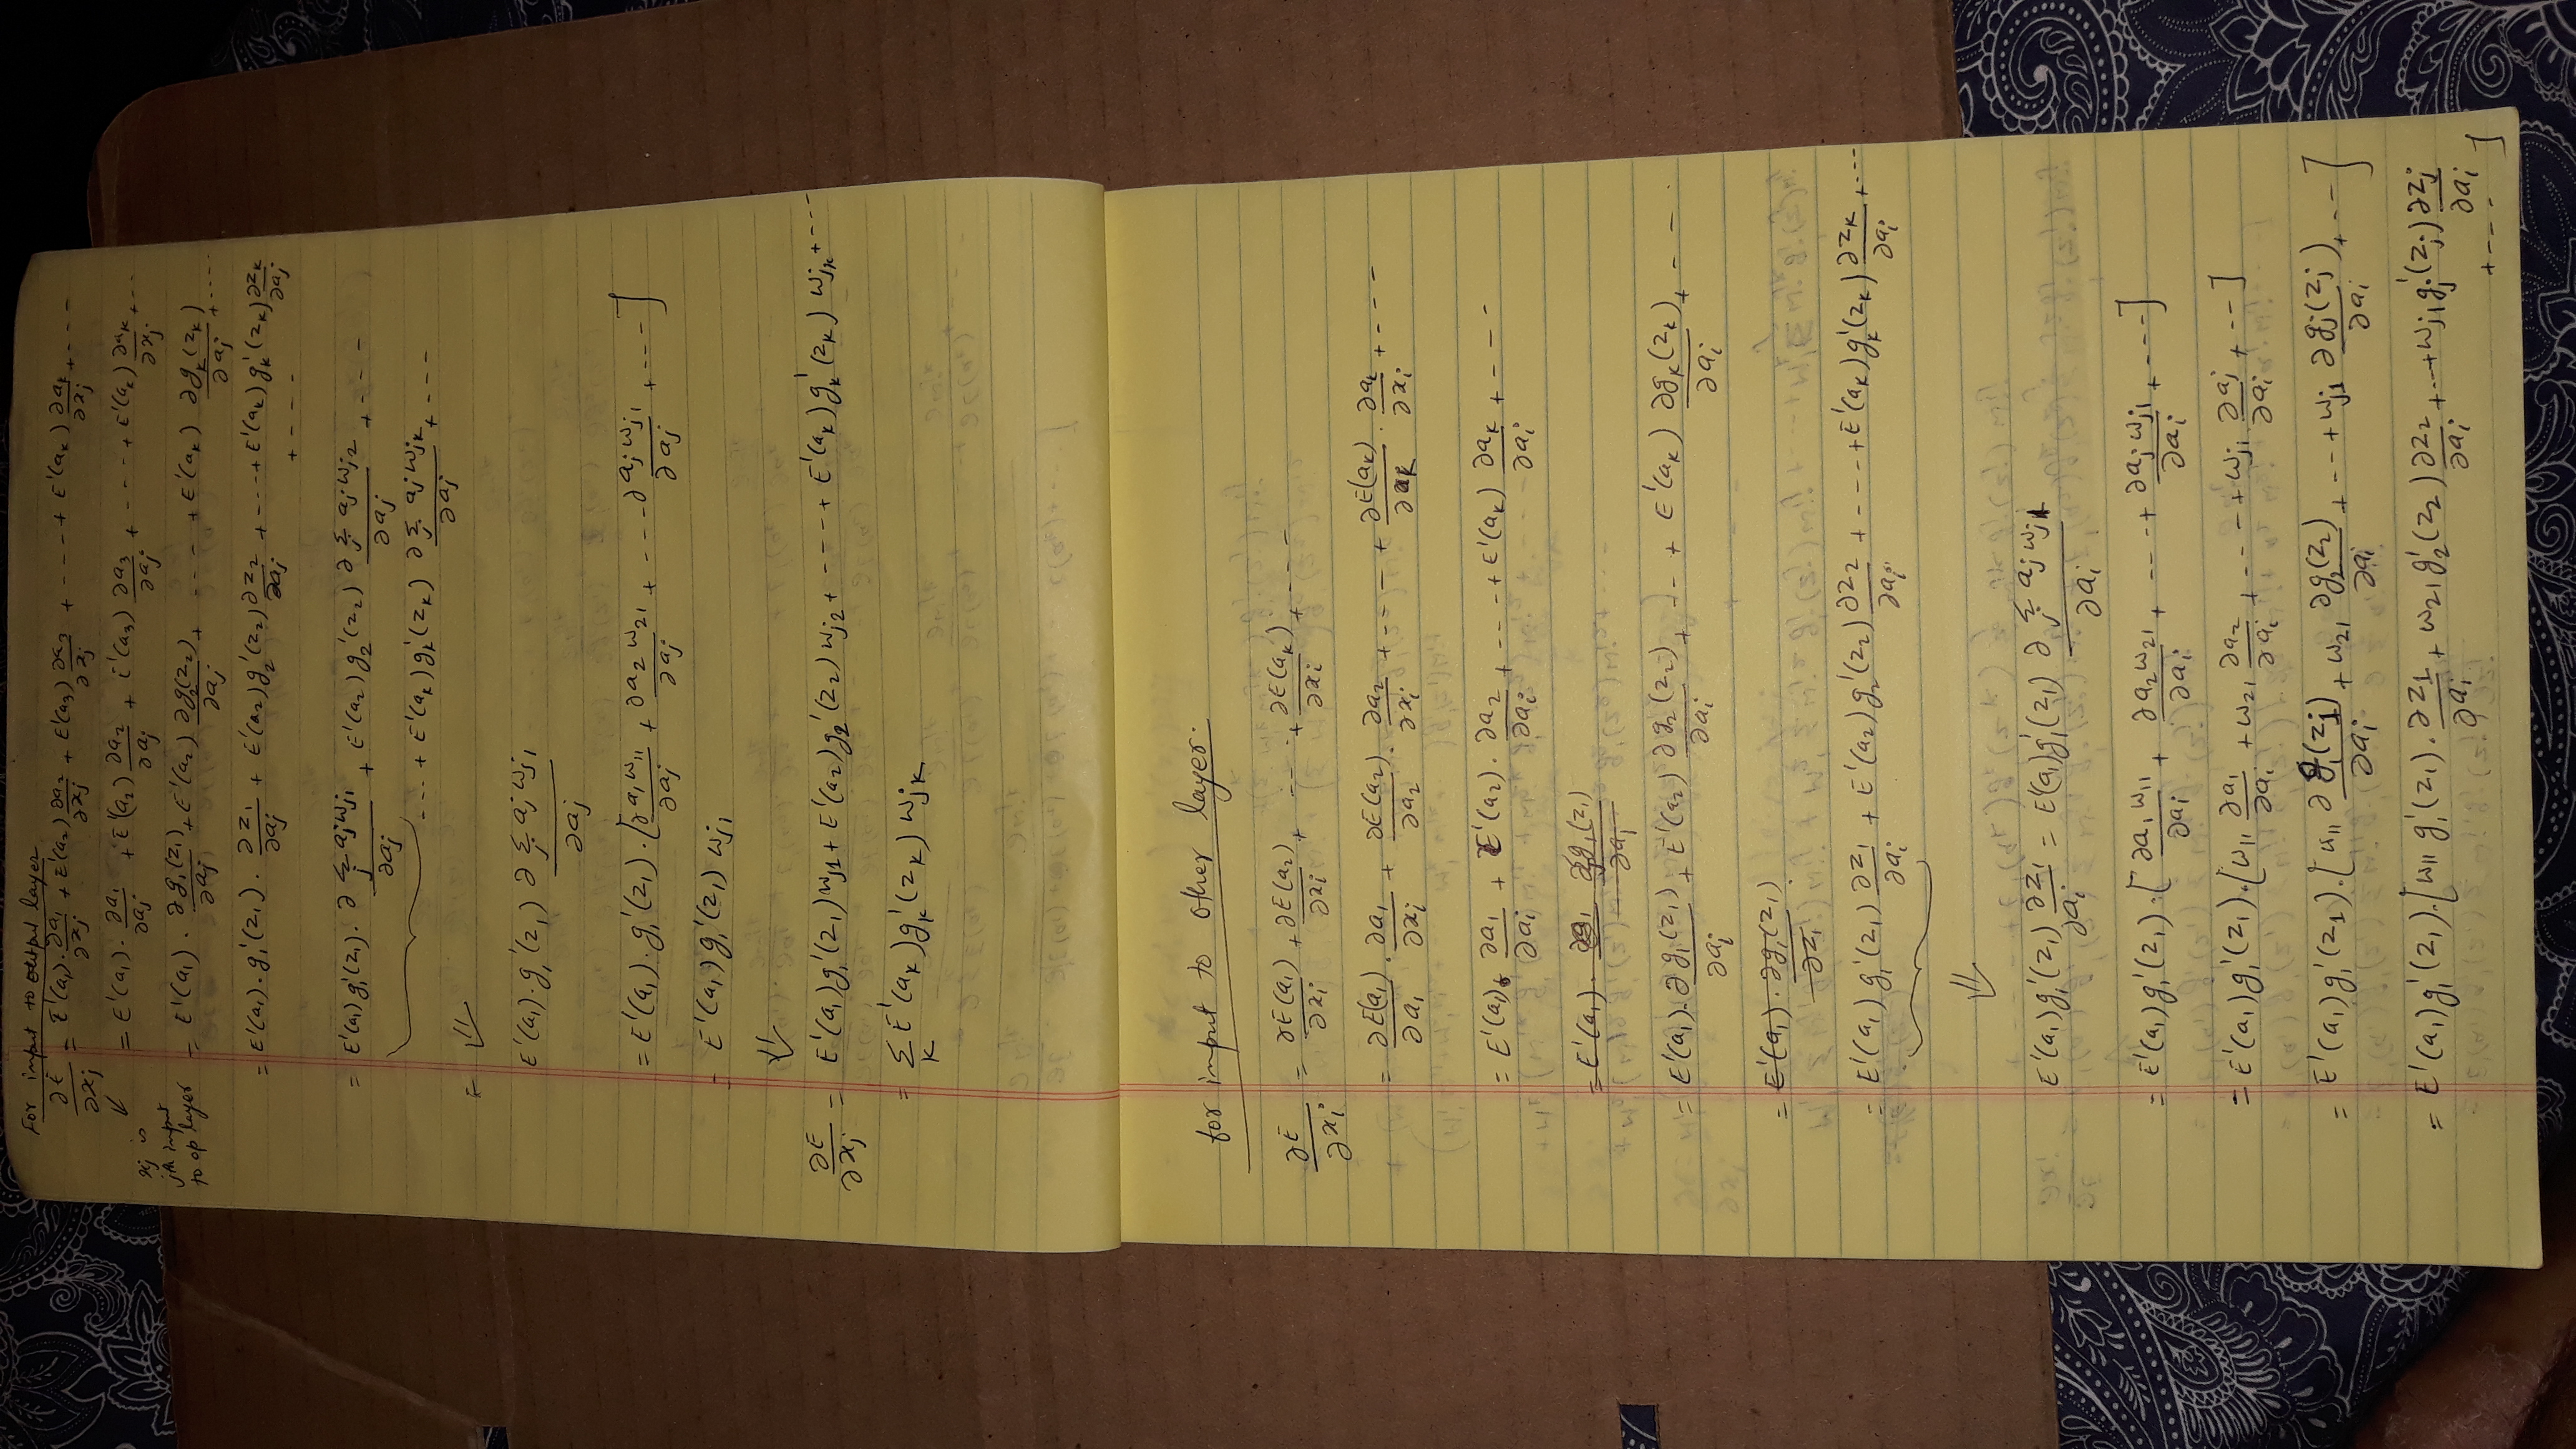 For input to output layer
∂E/∂xj = E'(a1)·∂a1/∂xj + E'(a2)∂a2/∂xj + E'(a3)∂a3/∂xj + ---- + E'(ak)∂ak/∂xj + ---
= E'(a1)·∂a1/∂aj + E'(a2)∂a2/∂aj + E'(a3)∂a3/∂aj + ---- + E'(ak)∂ak/∂xj + --
xj is
jth input
to op layer
= E'(a1)·∂g1(z1)/∂aj + E'(a2)∂g2(z2)/∂aj + ---- + E'(ak)∂gk(zk)/∂aj + ----
= E'(a1)·g1'(z1)·∂z1/∂aj + E'(a2)g2'(z2)∂z2/∂aj + ---- + E'(ak)gk'(zk)∂zk/∂aj
+ ----
= E'(a1)g1'(z1)·∂Σj ajwj1/∂aj + E'(a2)g2'(z2)∂Σj ajwj2/∂aj + ----
--- + E'(ak)gk'(zk)∂Σj ajwjk/∂aj + ---
= ⇓
E'(a1)·g1'(z1)∂Σj ajwj1/∂aj
= E'(a1)·g1'(z1)·[∂a1w11/∂aj + ∂a2w21/∂aj + ---- ∂ajwj1/∂aj + ----]
= E'(a1)g1'(z1)wj1
⇓
∂E/∂xj = E'(a1)g1'(z1)wj1 + E'(a2)g2'(z2)wj2 + ---- + E'(ak)gk'(zk)wjk + ---
= Σk E'(ak)gk'(zk)wjk
for input to other layer.
∂E/∂xi = ∂E(a1)/∂xi + ∂E(a2)/∂xi + ---- + ∂E(ak)/∂xi + ----
= ∂E(a1)/∂a1·∂a1/∂xi + ∂E(a2)/∂a2·∂a2/∂xi + ---- + ∂E(ak)/∂ak·∂ak/∂xi + ----
= E'(a1)·∂a1/∂ai + E'(a2)·∂a2/∂ai + ---- + E'(ak)∂ak/∂ai + ---
= E'(a1)· ∂g1(z1)/∂ai
= E'(a1)·∂g1(z1)/∂ai + E'(a2)∂g2(z2)/∂ai + --- + E'(ak)∂gk(zk)/∂ai + ---
= E'(a1)·∂g1(z1)/∂z1
= E'(a1)g1'(z1)∂z1/∂ai + E'(a2)g2'(z2)∂z2/∂ai + ---- + E'(ak)gk'(zk)∂zk/∂ai + ---
⇓
E'(a1)g1'(z1)∂z1/∂ai = E'(a1)g1'(z1)∂Σj ajwj1/∂ai
= E'(a1)g1'(z1)·[∂a1w11/∂ai + ∂a2w21/∂ai + ---- + ∂ajwj1/∂ai + ---]
= E'(a1)g1'(z1)·[w11∂a1/∂ai + w21∂a2/∂ai + ---- + wj1∂aj/∂ai + --]
= E'(a1)g1'(z1)·[w11∂g1(z1)/∂ai + w21∂g2(z2)/∂ai + --- + wj1∂gj(zj)/∂ai + ---]
= E'(a1)g1'(z1)·[w11g1'(z1)·∂z1/∂ai + w21g2'(z2)∂z2/∂ai + -- + wj1gj'(zj)∂zj/∂ai
+ ----]